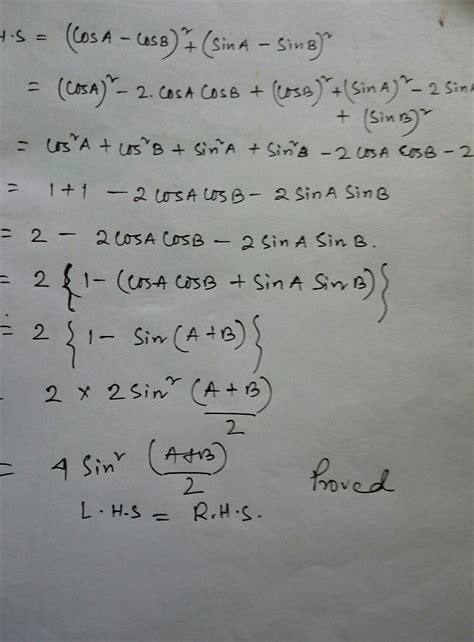 H.S = (CosA - CosB)² + (SinA - SinB)²
= (CosA)² - 2.CosA CosB + (CosB)² + (SinA)² - 2 SinA
+ (SinB)²
= Cos²A + Cos²B + Sin²A + Sin²B - 2 CosA CosB - 2
= 1+1 - 2 CosA CosB - 2 SinA SinB
= 2 - 2 CosA CosB - 2 SinA SinB.
= 2 { 1 - (CosA CosB + SinA SinB) }
= 2 { 1 - Sin (A+B) }
2 × 2 Sin² (A+B)/2
= 4 Sin² (A+B)/2
Proved
L.H.S = R.H.S.